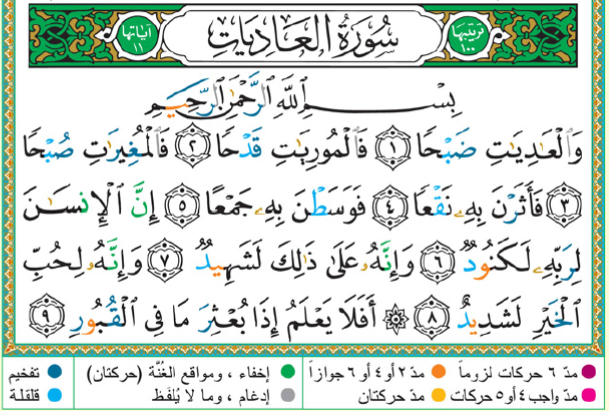 تَرْتِيبُهَا ١٠٠ سُورَةُ العَادِيَاتِ آيَاتُهَا ١١
بِسْمِ ٱللَّهِ ٱلرَّحْمَٰنِ ٱلرَّحِيمِ
وَٱلْعَٰدِيَٰتِ ضَبْحًا ١ فَٱلْمُورِيَٰتِ قَدْحًا ٢ فَٱلْمُغِيرَٰتِ صُبْحًا
٣ فَأَثَرْنَ بِهِۦ نَقْعًا ٤ فَوَسَطْنَ بِهِۦ جَمْعًا ٥ إِنَّ ٱلْإِنسَٰنَ
لِرَبِّهِۦ لَكَنُودٌ ٦ وَإِنَّهُۥ عَلَىٰ ذَٰلِكَ لَشَهِيدٌ ٧ وَإِنَّهُۥ لِحُبِّ
ٱلْخَيْرِ لَشَدِيدٌ ٨ ۞ أَفَلَا يَعْلَمُ إِذَا بُعْثِرَ مَا فِى ٱلْقُبُورِ ٩
مدّ ٦ حركات لزوماً مدّ ٢ أو ٤ أو ٦ جوازاً إخفاء ، ومواقع الغُنَّة (حركتان) تفخيم
مدّ واجب ٤ أو ٥ حركات مدّ حركتان إدغام ، وما لا يُلفَظ قلقلة